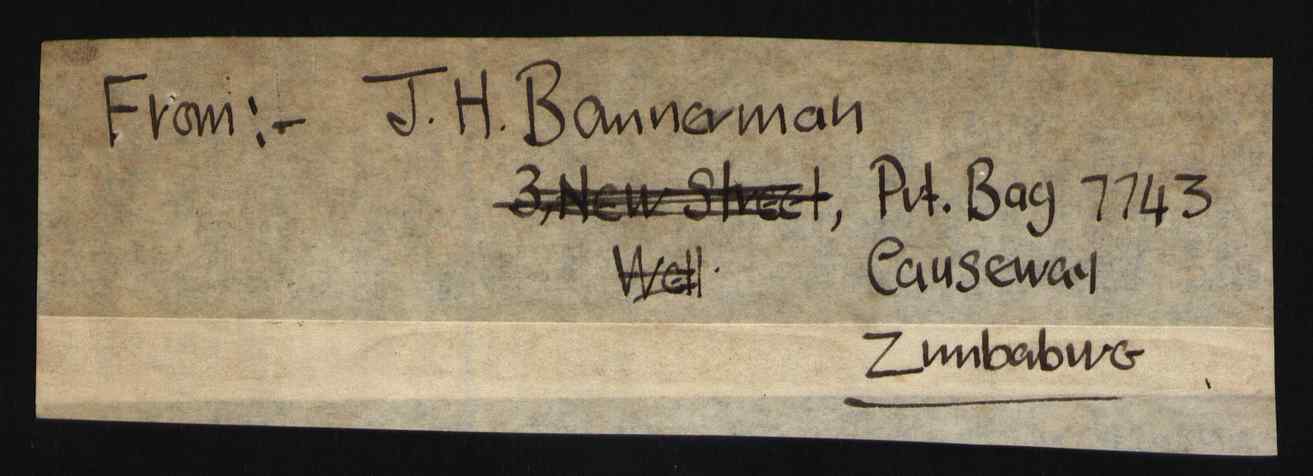 From:- J. H. Bannerman
3, New Street, Pvt. Bag 7743
Well. Causeway
Zimbabwe